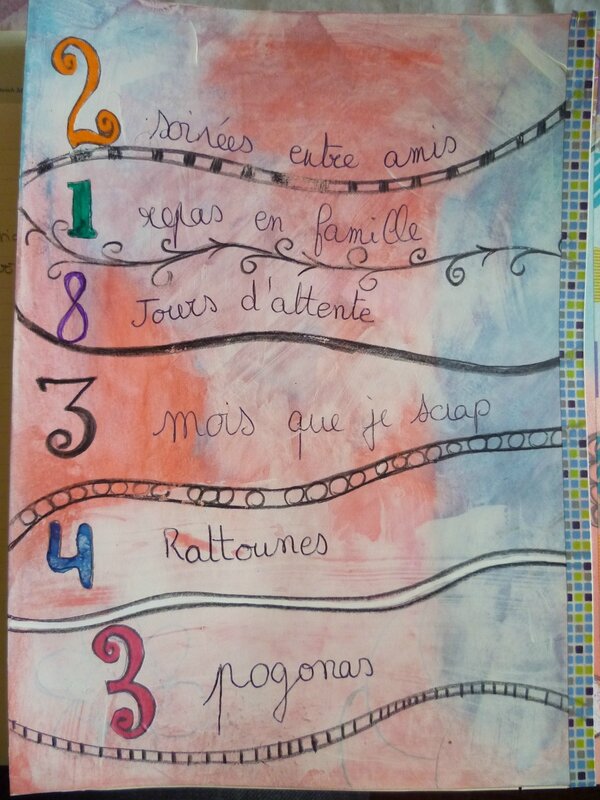 2 soirées entre amis
1 repas en famille
8 Jours d'attente
3 mois que je scrap
4 Rattounes
3 pogonas